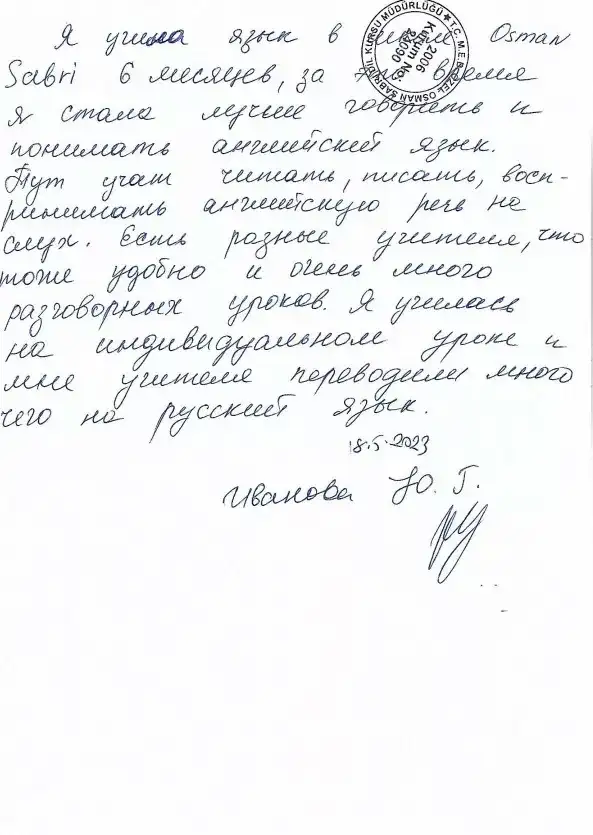 Я учила язык в школе Osman
Sabri 6 месяцев, за это время
я стала лучше говорить и
понимать английский язык.
Тут учат читать, писать, восп-
ринимать английскую речь на
слух. Есть разные учителя, что
тоже удобно и очень много
разговорных уроков. Я училась
на индивидуальном уроке и
мне учителя переводили много
чего на русский язык.
18.5.2023
Иванова Ю. Г.
KURSU MÜDÜRLÜĞÜ ★ T.C. M.E.B. ÖZEL OSMAN SABRİ DİL
2006
Kurum No: